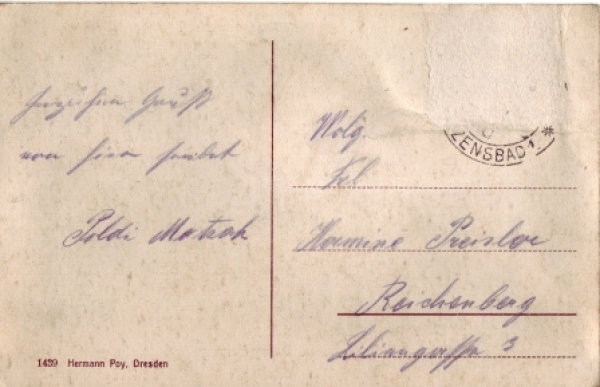 herzlichen Gruß
von hier sendet
Poldi Matzak
ZENSBAD 1 *
Wolg.
Frl
Hermine Preisler
Reichenberg
Liliengasse 3
1439 Hermann Poy, Dresden